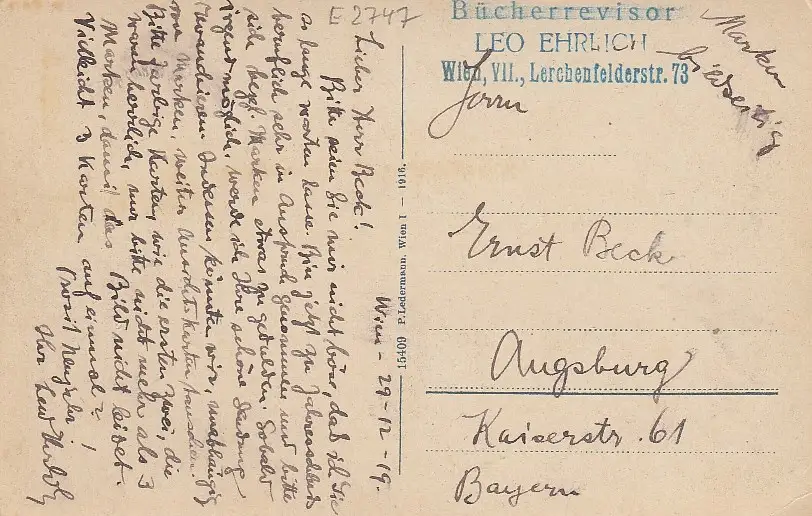 E 2747
Bücherrevisor
LEO EHRLICH
Wien, VII., Lerchenfelderstr. 73
Marken
bildseitig
Herrn
Ernst Beck
Augsburg
Kaiserstr. 61
Bayern
15409 P. Ledermann, Wien I – 1916.
Wien – 29-12-19.
Lieber Herr Beck!
Bitte seien Sie mir nicht böse, daß ich Sie
so lange warten lasse. Bin jetzt zu
beruflich sehr in Anspruch genommen und bitte
sich bezgl. Marken etwas zu gedulden. Sobald
irgend möglich, werde ich Ihre schöne Sendung
Indessen könnten wir, unabhängig
von Marken, weiter Ansichtskarten tauschen.
Bitte farbige Karten, wie die ersten zwei, die
waren herrlich, nur bitte nicht mehr als 3
Marken, damit das Bild nicht leidet.
Vielleicht 3 Karten auf einmal?
Prosit Neujahr!
Ihr